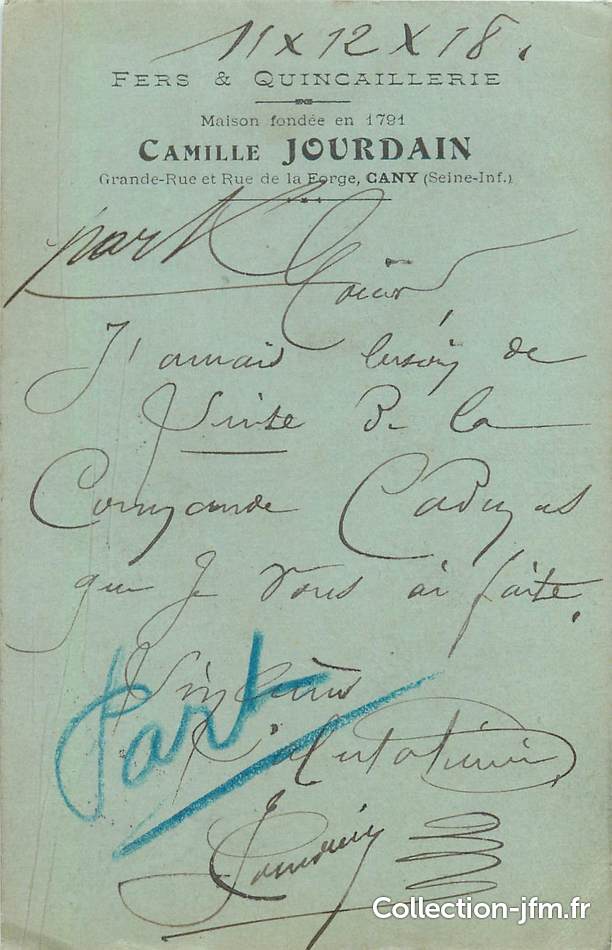 11 x 12 x 18.
FERS & QUINCAILLERIE
Maison fondée en 1791
CAMILLE JOURDAIN
Grande-Rue et Rue de la Forge, CANY (Seine-Inf.)
part
J'aurais besoin de
suite de la
Commande
que je vous ai faite.
Sincères
Salutations
Part
Jourdain
Collection-jfm.fr